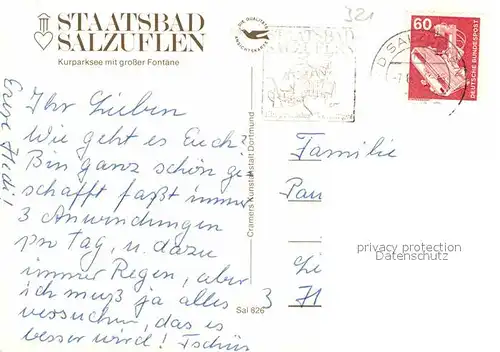 STAATSBAD
SALZUFLEN
Kurparksee mit großer Fontäne
DIE QUALITÄTS
ANSICHTSKARTE
321
STAATSBAD
SALZUFLEN
60
DEUTSCHE BUNDESPOST
Ihr Lieben
Wie geht es Euch?
Bin ganz schön ge-
schafft faßt immer
3 Anwendungen
pro Tag, u. dazu
immer Regen, aber
ich muß ja alles
versuchen, das es
besser wird! Tschüs
Eure Heidi!
Cramers Kunstanstalt Dortmund
Sal 626
Familie
Pau
Li
3 71
privacy protection
Datenschutz